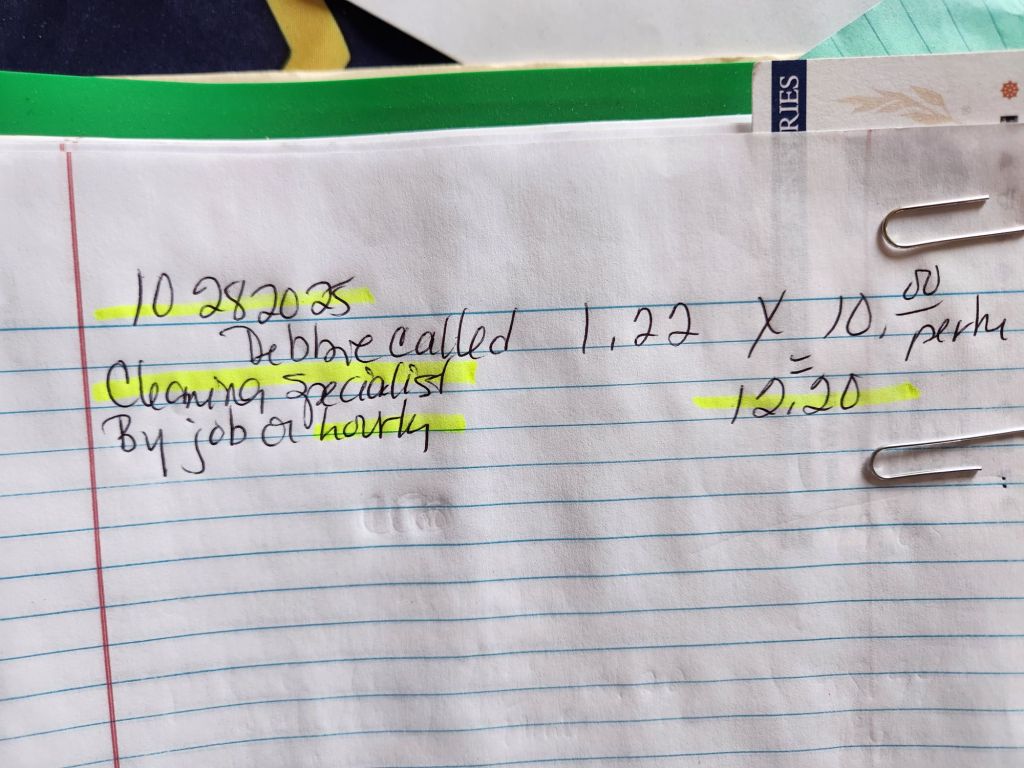 RIES
10 28 2025
Debbie called 1.22 X 10.00 per hr
Cleaning Specialist =
By job or hourly 12.20